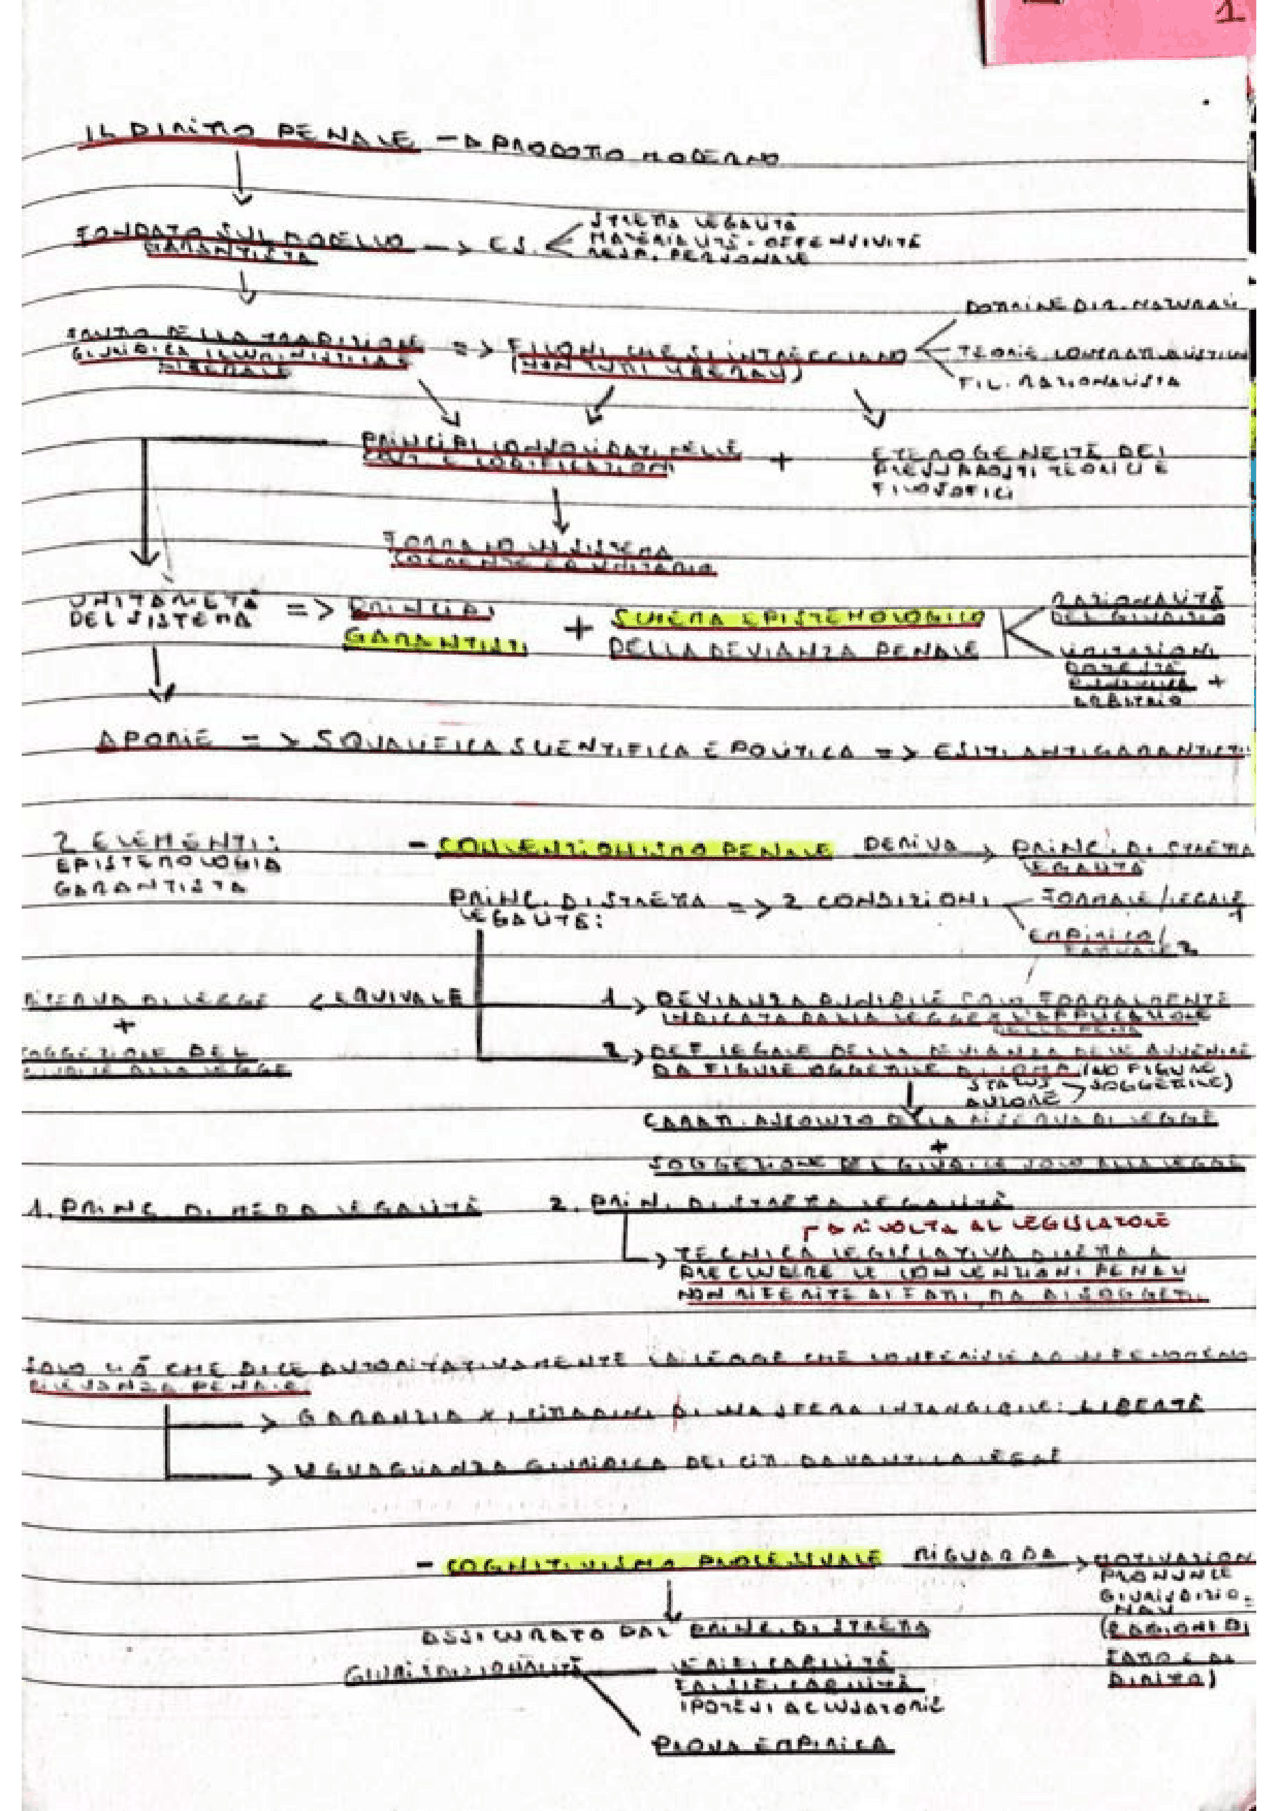 1
IL DIRITTO PENALE -> PRODOTTO MODERNO
FONDATO SUL MODELLO -> ES.
GARANTISTA
STRETTA LEGALITÀ
MATERIALITÀ - OFFENSIVITÀ
RESP. PERSONALE
DOTTRINE DIR. NATURALI
FRUTTO DELLA TRADIZIONE => FILONI CHE SI INTRECCIANO
GIURIDICA ILLUMINISTICA E (NON TUTTI LIBERALI)
LIBERALE
TEORIE CONTRATTUALISTICHE
FIL. RAZIONALISTA
PRINCIPI CONSOLIDATI NELLE + ETEROGENEITÀ DEI
COST. E CODIFICAZIONI PRESUPPOSTI TEORICI E
FILOSOFICI
FORMANO UN SISTEMA
COERENTE ED UNITARIO
UNITARIETÀ => PRINCIPI + SCHEMA EPISTEMOLOGICO
DEL SISTEMA GARANTISTI DELLA DEVIANZA PENALE
RAZIONALITÀ
DEL GIUDIZIO
LIMITAZIONI
POTESTÀ
PUNITIVA +
ARBITRIO
APORIE => SQUALIFICA SCIENTIFICA E POLITICA => ESITI ANTIGARANTISTI
2 ELEMENTI: - CONVENZIONISMO PENALE DERIVA -> PRINC. DI STRETTA
EPISTEMOLOGIA LEGALITÀ
GARANTISTA
PRINC. DI STRETTA => 2 CONDIZIONI FORMALE/LEGALE 1
LEGALITÀ:
EMPIRICA/
FATTUALE 2
RISERVA DI LEGGE < EQUIVALE 1 > DEVIANZA PUNIBILE SOLO FORMALMENTE
+ INDICATA DALLA LEGGE X L'APPLICAZIONE
DELLA PENA
SOGGEZIONE DEL 2 > DEF. LEGALE DELLA DEVIANZA DEVE AVVENIRE
GIUDICE ALLA LEGGE DA FIGURE OGGETTIVE DI (NO FIGURE
STATUS > SOGGETTIVE)
AUTORE
CARATT. ASSOLUTO DELLA RISERVA DI LEGGE
+
SOGGEZIONE DEL GIUDICE SOLO ALLA LEGGE
1. PRINC. DI MERA LEGALITÀ 2. PRIN. DI STRETTA LEGALITÀ
-> RIVOLTA AL LEGISLATORE
> TECNICA LEGISLATIVA DIRETTA A
PRECLUDERE LE CONVENZIONI PENALI
NON RIFERITE AI FATTI, MA AI SOGGETTI.
SOLO CIÒ CHE DICE AUTORITATIVAMENTE LA LEGGE CHE CONFERISCE AD UN FENOMENO
RILEVANZA PENALE.
> GARANZIA X I CITTADINI DI UNA SFERA INTANGIBILE: LIBERTÀ
> UGUAGLIANZA GIURIDICA DEI CITT. DAVANTI LA LEGGE
- COGNITIVISMO PROCESSUALE RIGUARDA > MOTIVAZIONI
PRONUNCE
GIURISDIZIO-
NALI
(RAGIONI DI
FATTO E DI
DIRITTO)
ASSICURATO DAL PRINC. DI STRETTA
GIURISDIZIONALITÀ VERIFICABILITÀ
FALSIFICABILITÀ
IPOTESI ACCUSATORIE
PROVA EMPIRICA